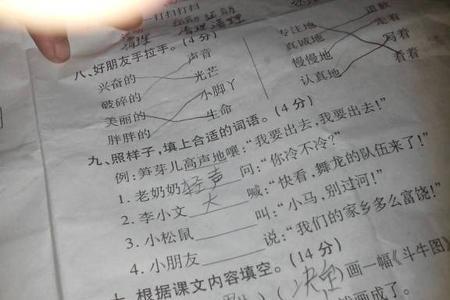 一打扫打扫
清理 清理
八、好朋友手拉手。(4分)
兴奋的 声音
破碎的 光芒
美丽的 小脚丫
胖胖的 生命
专注地 道歉
真诚地 走着
慢慢地 写着
认真地 看着
九、照样子,填上合适的词语。(4分)
例:笋芽儿高声地嚷:“我要出去,我要出去!”
1. 老奶奶轻声问:“你冷不冷?”
2. 李小文大喊:“快看,舞龙的队伍来了!”
3. 小松鼠______叫:“小马,别过河!”
4. 小朋友______说:“我们的家乡多么富饶!”
十、根据课文内容填空。(14分)
决定)画一幅《斗牛图》
画成了。